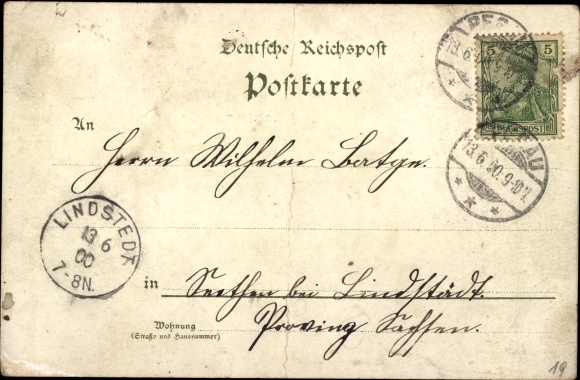 Deutsche Reichspost
Postkarte
5 5
REICHSPOST
13.6.00.9-10V.
An
Herrn Wilhelm Batge.
LINDSTEDT
13 6
00
7-8N.
in Seethen bei Lindstädt.
Wohnung
(Straße und Hausnummer)
Provinz Sachsen.
19